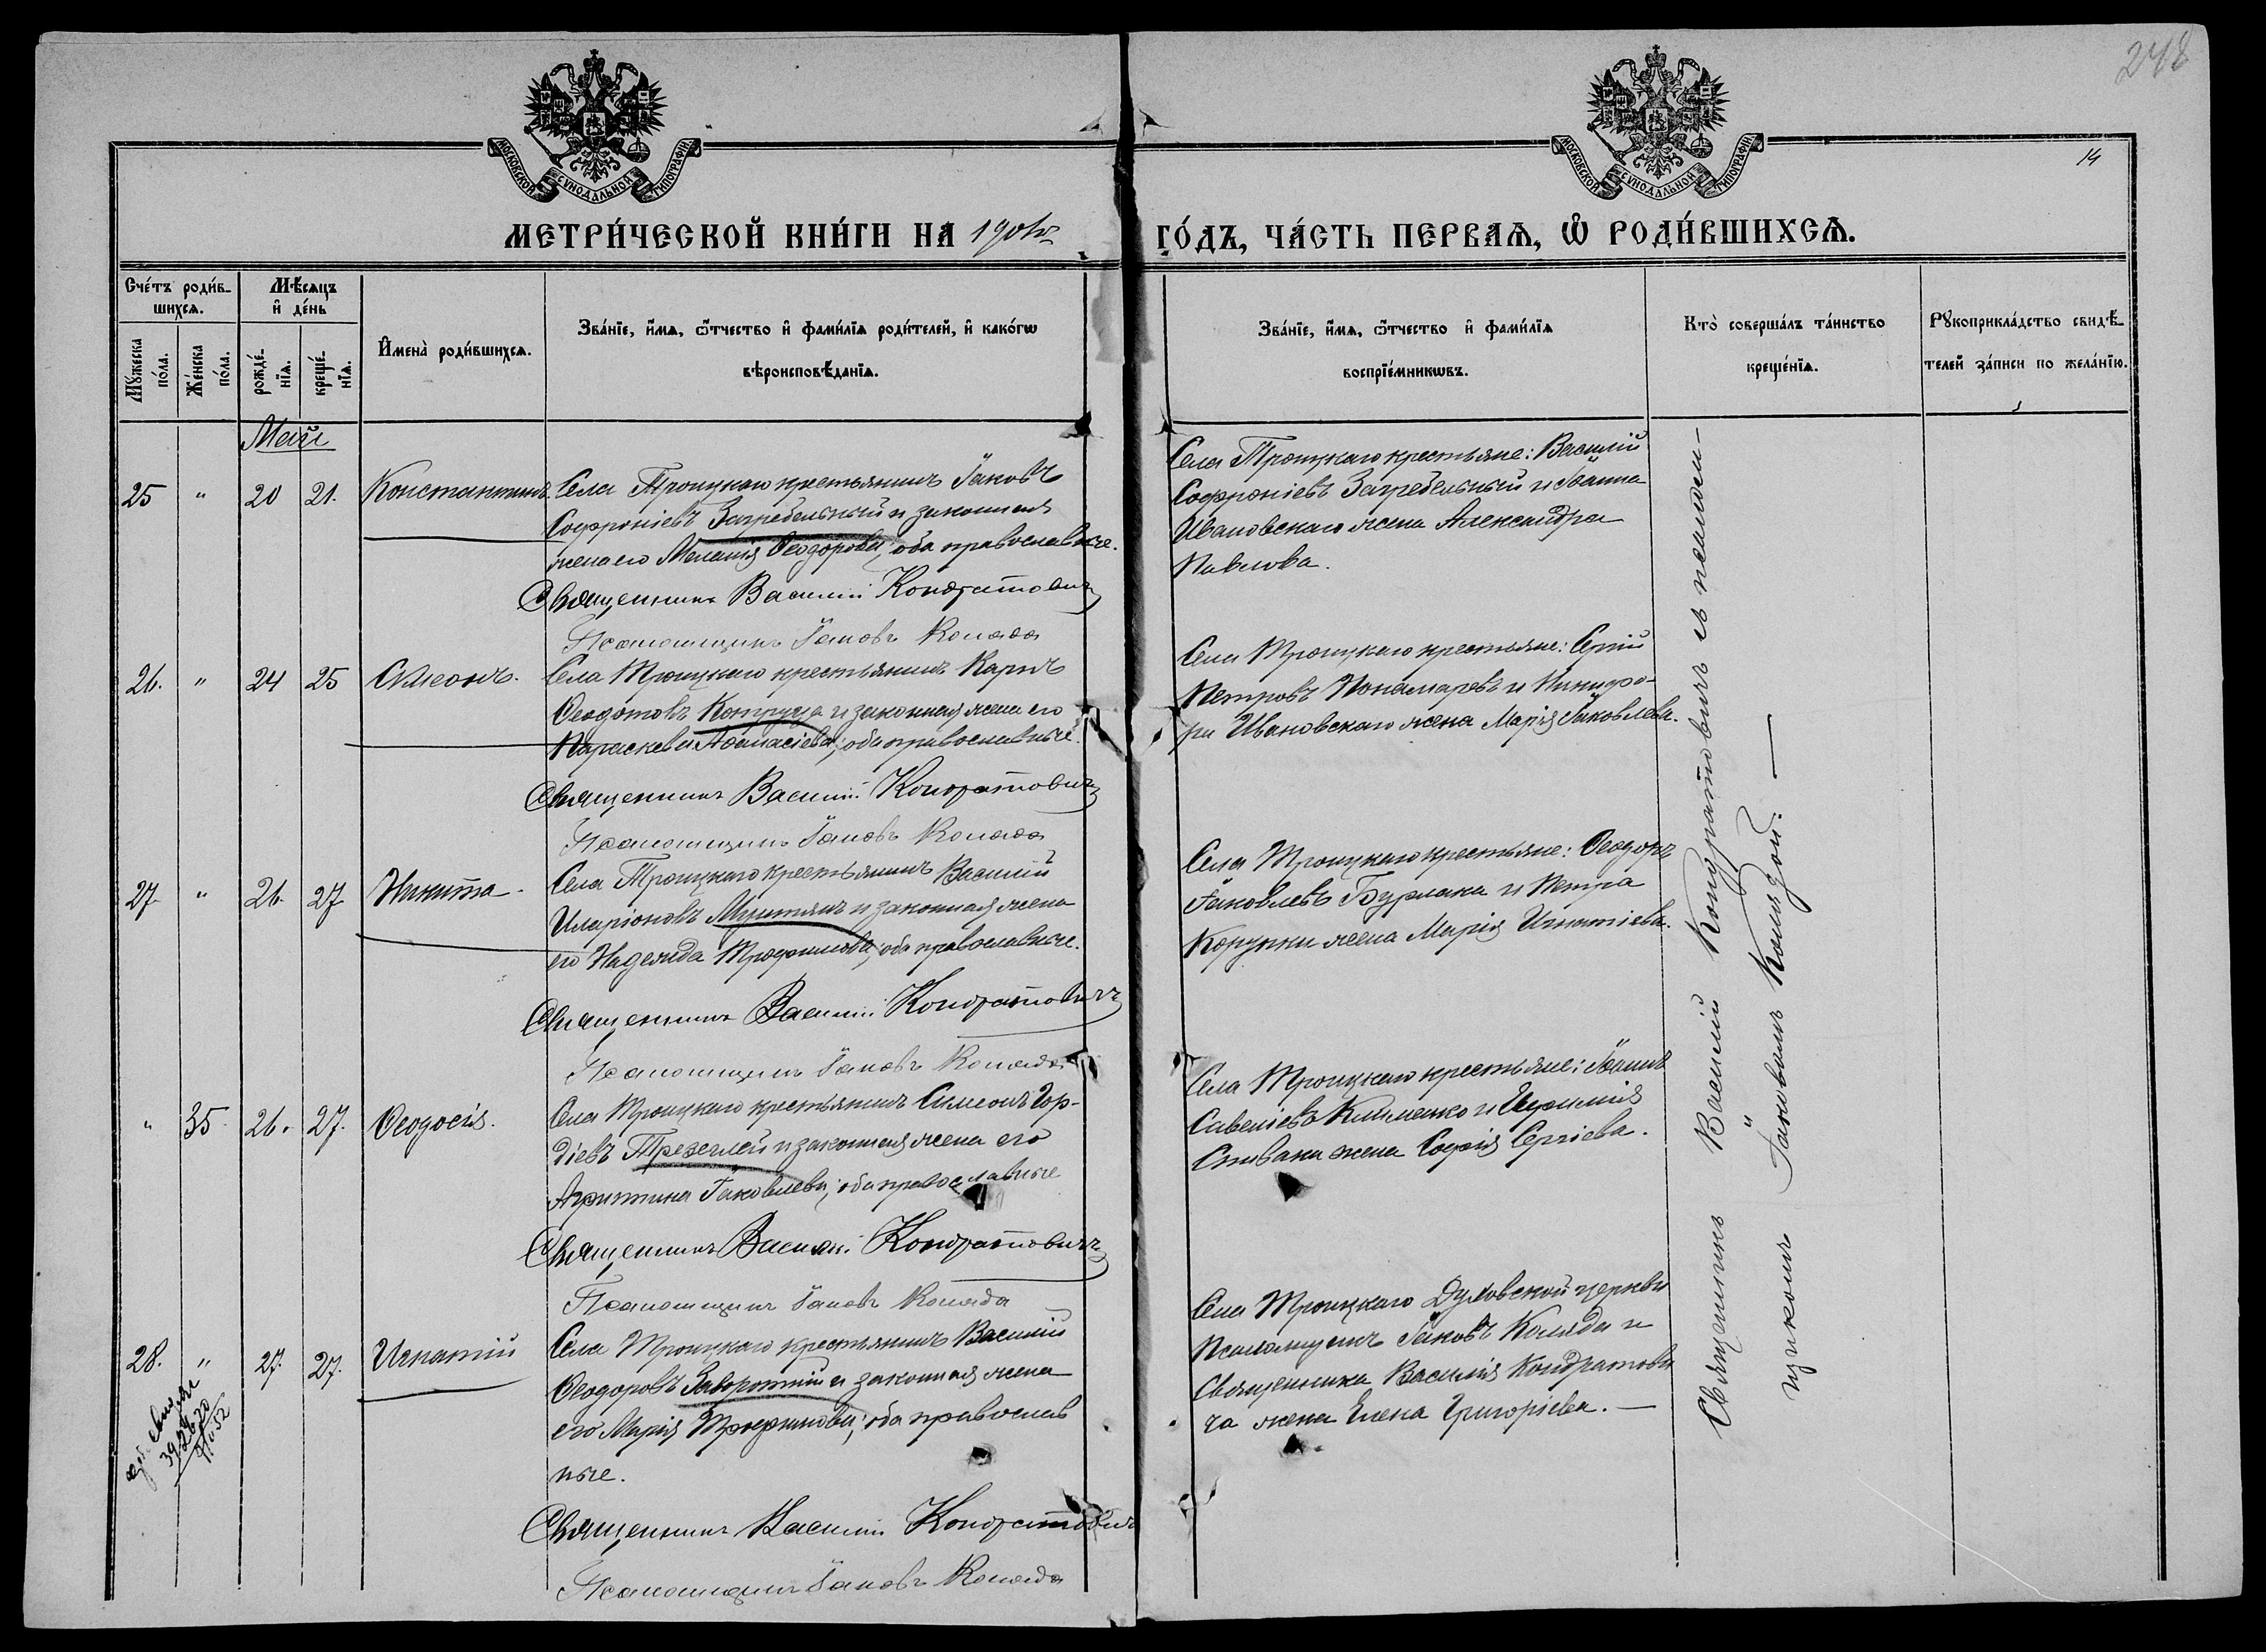 248
14
МОСКОВСКОЙ СѴНОДАЛЬНОЙ ТИПОГРАФІИ
МОСКОВСКОЙ СѴНОДАЛЬНОЙ ТИПОГРАФІИ
МЕТРИ́ЧЕСКОЙ КНИ́ГИ НА 190
ГО́ДЪ, ЧА́СТЬ ПЕРВАѦ, Ѡ РОДИ́ВШИХСѦ.
Сче́тъ роди́в-
шихсѧ.
Мꙋ́жеска по́ла.
Же́нска по́ла.
Мѣ́сѧцъ
и де́нь
рожде́-
нїѧ.
креще́-
нїѧ.
Имена̀ роди́вшихсѧ.
Зва́нїе, и́мѧ, ѻ́тчество и фами́лїѧ роди́телей, и како́гѡ
вѣроисповѣ́данїѧ.
Зва́нїе, и́мѧ, ѻ́тчество и фами́лїѧ
воспрїе́мникѡвъ.
Кто̀ соверша́лъ та́инство
креще́нїѧ.
Рꙋкоприкла́дство свидѣ́-
телей за́писи по жела́нїю.
Май
25 " 20 21. Константинъ.
Села Троицкаго крестьянинъ Іаковъ
Софроніевъ Загребельный и законная
жена его Меланія Ѳеодорова; оба православные.
Священникъ Василій Кондратовичъ
Псаломщикъ Іаковъ Коляда
Села Троицкаго крестьяне: Василій
Софроніевъ Загребельный и Іоанна
Ивановскаго жена Александра
Павлова.
26. " 24 25 Симеонъ.
Села Троицкаго крестьянинъ Карпъ
Ѳеодотовъ и законная жена его
Параскева Аѳанасіева; оба православные.
Священникъ Василій Кондратовичъ
Псаломщикъ Іаковъ Коляда
Села Троицкаго крестьяне: Сергій
Петровъ Понамаревъ и Никифо-
ра Ивановскаго жена Марія Іаковлева.
27. " 26. 27 Никита.
Села Троицкаго крестьянинъ Василій
Иларіоновъ и законная жена
его Надежда Трофимова; оба православные.
Священникъ Василій Кондратовичъ
Псаломщикъ Іаковъ Коляда
Села Троицкаго крестьяне: Ѳеодоръ
Іаковлевъ Бурлака и Петра
жена Марія Игнатіева.
" 35. 26. 27. Ѳеодосія.
Села Троицкаго крестьянинъ Симеонъ Гор-
діевъ и законная жена его
Агриппина Іаковлева; оба православные
Священникъ Василій Кондратовичъ
Псаломщикъ Іаковъ Коляда
Села Троицкаго крестьяне: Іоаннъ
Савеліевъ Клименко и
жена Софія Сергіева.
28. " 27. 27. Игнатій
Села Троицкаго крестьянинъ Василій
Ѳеодоровъ Заворотній и законная жена
его Марія; оба православ
ные.
Священникъ Василій Кондратовичъ
Псаломщикъ Іаковъ Коляда
Села Троицкаго Духовской церкви
псаломщикъ Іаковъ Коляда и
Священника Василія Кондратови
ча жена Елена Григоріева. —
Священникъ Василій Кондратовичъ съ псалом-
щикомъ Іаковомъ Колядой. —